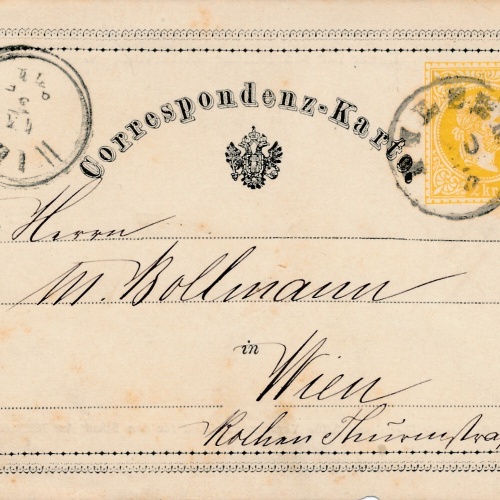 Correspondenz-Karte
Herrn
M. Bollmann
in
Wien
Rothen Thurmstra